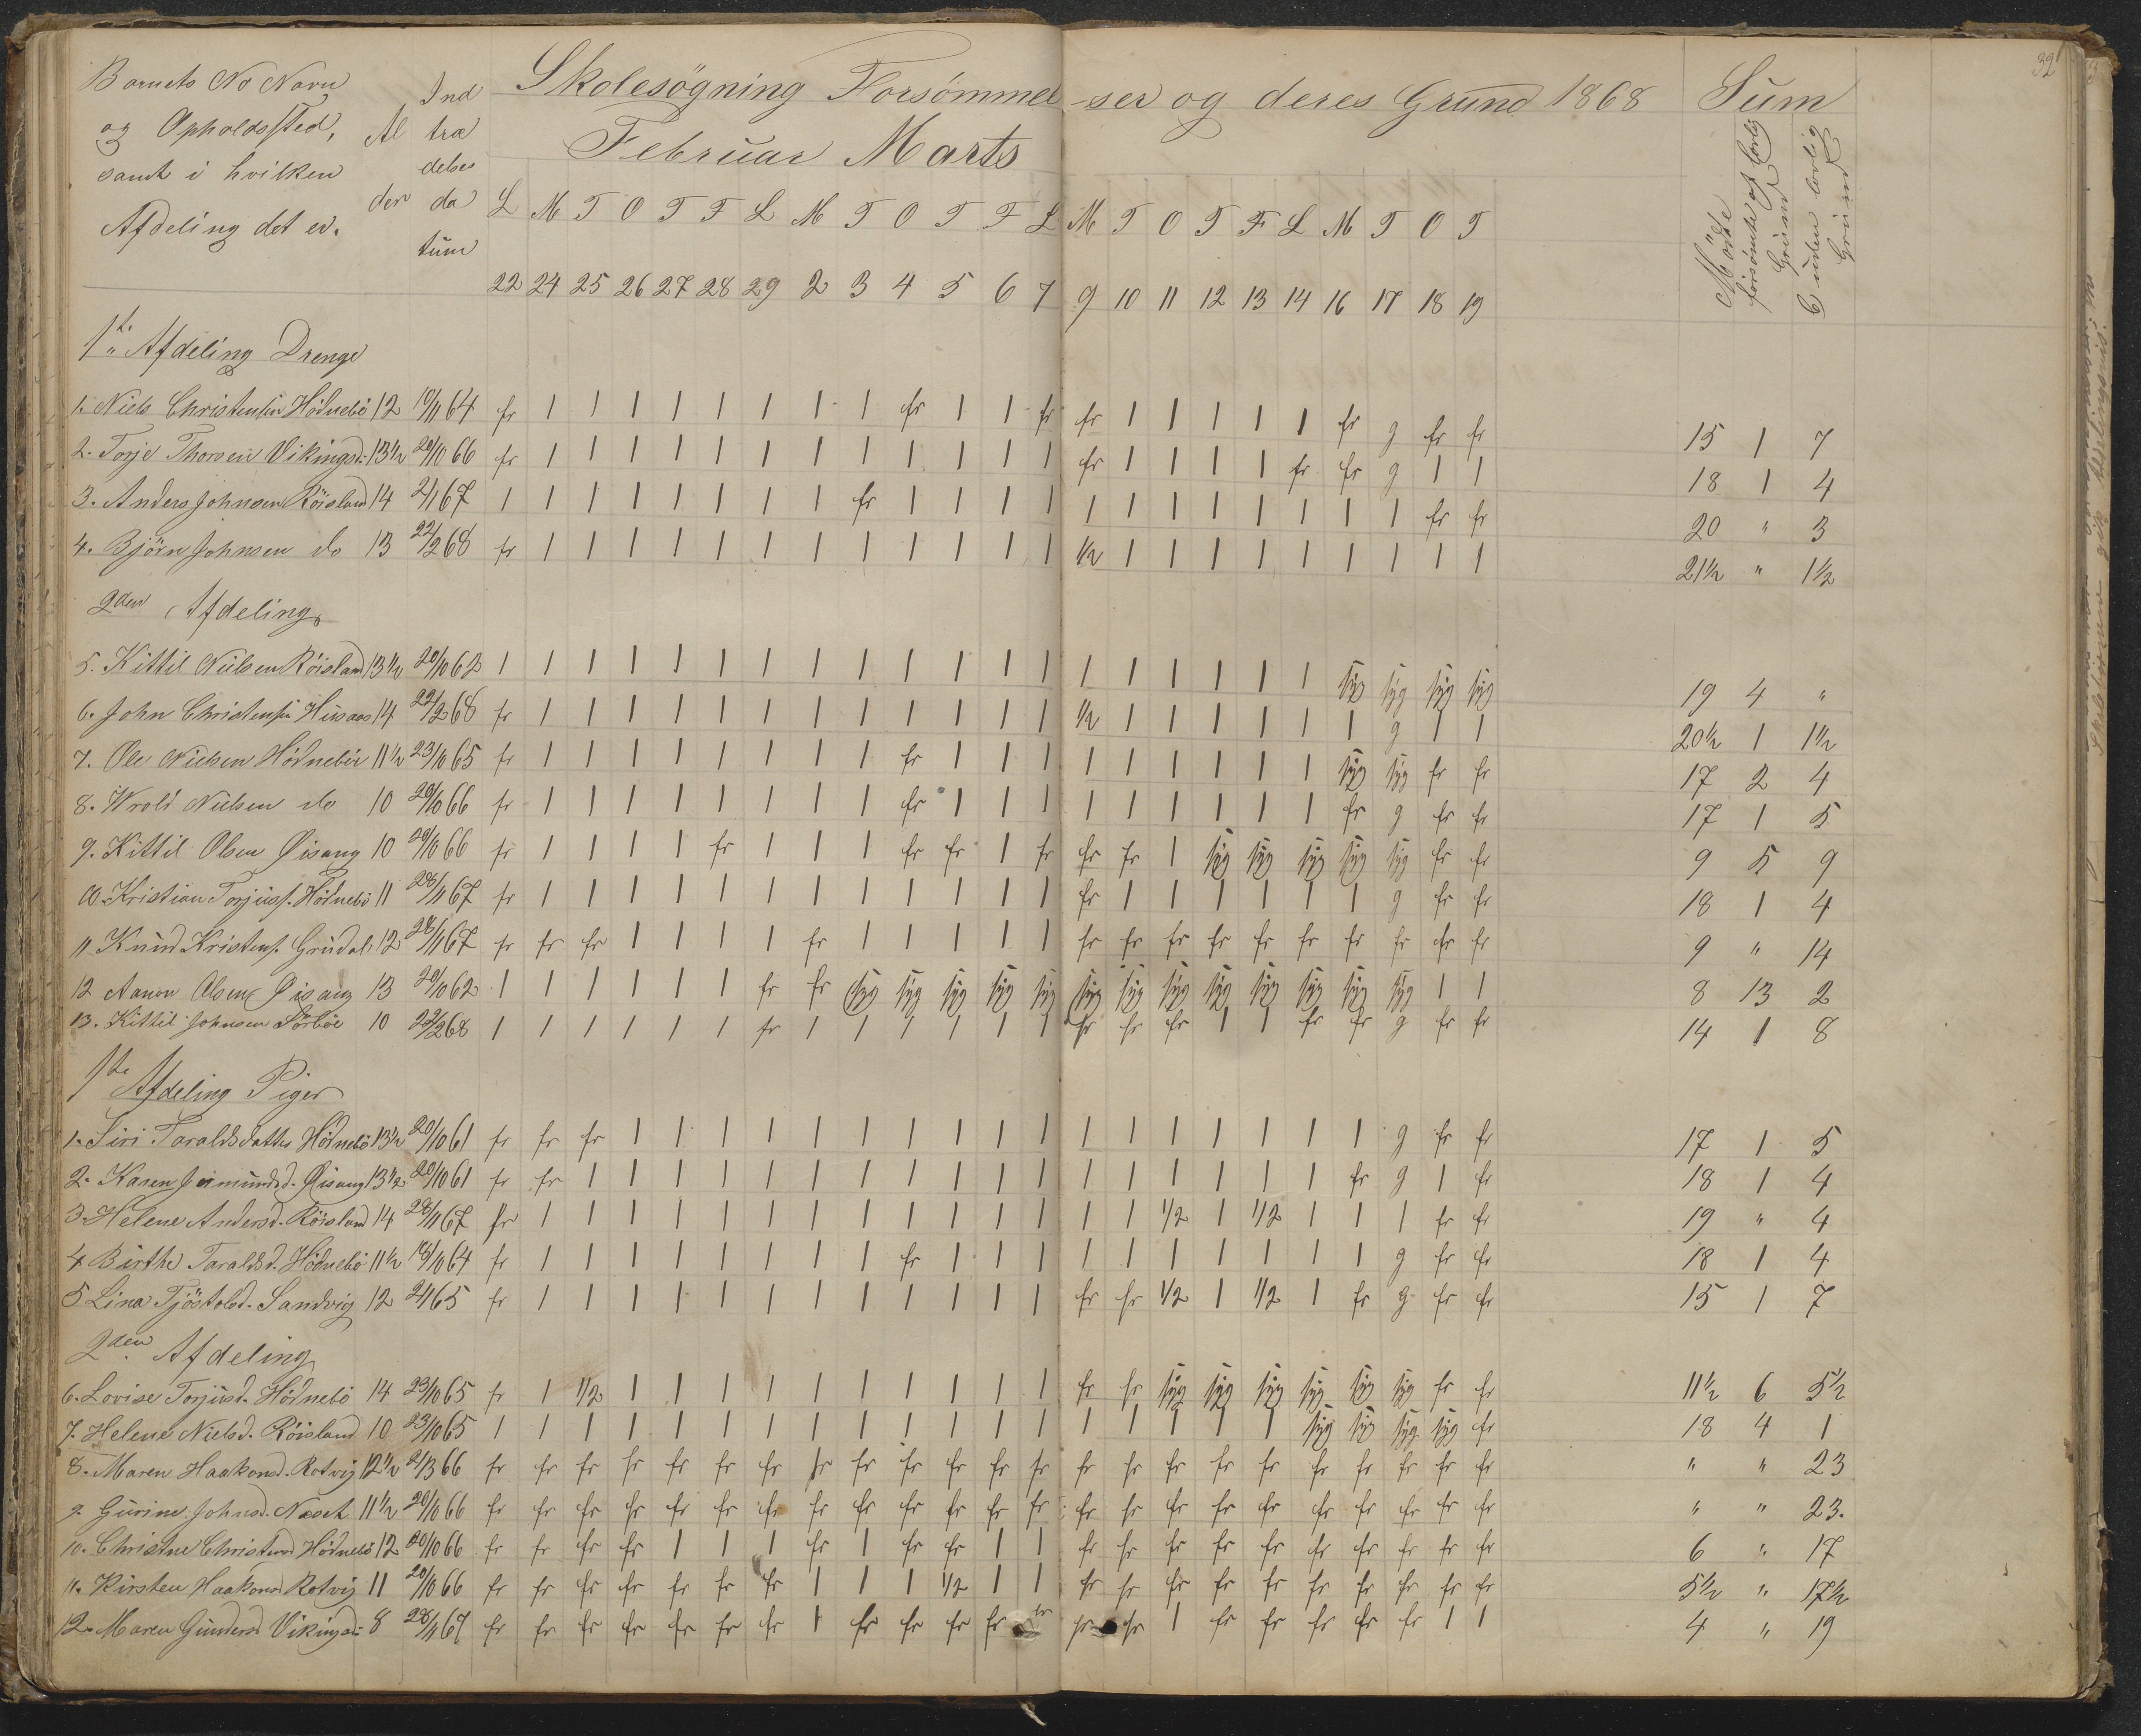 32
Barnets No Navn
og Opholdssted,
samt i hvilken
Afdeling det er.
Al
der
Ind
træ
delses
da
tum
Skolesögning Forsömmel-ser og deres Grund 1868
Sum
Februar Marts
Mödte
forsömte af lovlig Grund
uden lovlig Grund
L M T O T F L M T O T F L M T O T F L M T O T
22 24 25 26 27 28 29 2 3 4 5 6 7 9 10 11 12 13 14 16 17 18 19
1te Afdeling Drenge
1. Niels Christensen Hödnebö 12 19/11 64 fr 1 1 1 1 1 1 1 1 fr 1 1 fr fr 1 1 1 1 1 fr g fr fr 15 1 7
2. Torje Thorsen Vikingsd. 13½ 20/10 66 fr 1 1 1 1 1 1 1 1 1 1 1 1 fr 1 1 1 1 fr fr g 1 1 18 1 4
3. Anders Johnsen Röisland 14 2/1 67 1 1 1 1 1 1 1 1 fr 1 1 1 1 1 1 1 1 1 1 1 1 fr fr 20 " 3
4. Björn Johnsen do 13 22/2 68 fr 1 1 1 1 1 1 1 1 1 1 1 1 ½ 1 1 1 1 1 1 1 1 1 21½ " 1½
2den Afdeling
5. Kittil Nielsen Röisland 13½ 20/10 62 1 1 1 1 1 1 1 1 1 1 1 1 1 1 1 1 1 1 1 syg syg syg syg 19 4 "
6. John Christensen Husaas 14 22/2 68 fr 1 1 1 1 1 1 1 1 1 1 1 1 ½ 1 1 1 1 1 1 g 1 1 20½ 1 1½
7. Ole Nielsen Hödnebö 11½ 23/10 65 fr 1 1 1 1 1 1 1 1 fr 1 1 1 1 1 1 1 1 1 syg syg fr fr 17 2 4
8. Wrold Nielsen do 10 20/10 66 fr 1 1 1 1 1 1 1 1 fr 1 1 1 1 1 1 1 1 1 fr g fr fr 17 1 5
9. Kittil Olsen Øisang 10 20/10 66 fr 1 1 1 1 fr 1 1 1 fr fr 1 fr fr fr 1 syg syg syg syg syg fr fr 9 5 9
10. Kristian Torjuss. Hödnebö 11 28/11 67 fr 1 1 1 1 1 1 1 1 1 1 1 1 fr 1 1 1 1 1 1 g fr fr 18 1 4
11 Knud Kristens. Grudal 12 28/11 67 fr fr fr 1 1 1 1 fr 1 1 1 1 1 fr fr fr fr fr fr fr fr fr fr 9 " 14
12 Aanon Olsen Øisang 13 20/10 62 1 1 1 1 1 1 fr fr syg syg syg syg syg syg syg syg syg syg syg syg syg 1 1 8 13 2
13. Kittil Johnsen Sörböe 10 22/2 68 1 1 1 1 1 1 fr 1 1 1 1 1 1 fr fr fr 1 1 fr fr g fr fr 14 1 8
1te Afdeling Piger
1. Siri Taraldsdatter Hödnebö 13½ 20/10 61 fr fr fr 1 1 1 1 1 1 1 1 1 1 1 1 1 1 1 1 1 g fr fr 17 1 5
2. Karen Jermundsd. Øisang 13½ 20/10 61 fr fr 1 1 1 1 1 1 1 1 1 1 1 1 1 1 1 1 1 fr g 1 fr 18 1 4
3. Helene Andersd. Röisland 14 28/11 67 fr 1 1 1 1 1 1 1 1 1 1 1 1 1 1 1/2 1 1/2 1 1 1 fr fr 19 " 4
4 Birthe Taraldsd. Hödnebö 11½ 18/10 64 fr 1 1 1 1 1 1 1 1 fr 1 1 1 1 1 1 1 1 1 1 g fr fr 18 1 4
5 Lina Tjöstolvd. Sandvig 12 2/1 65 fr 1 1 1 1 1 1 1 1 1 1 1 1 fr fr 1/2 1 1/2 1 fr g fr fr 15 1 7
2den Afdeling
6. Lovise Torjusd. Hödnebö 14 23/10 65 fr 1 1/2 1 1 1 1 1 1 1 1 1 1 fr fr syg syg syg syg syg syg fr fr 11½ 6 5½
7. Helene Nielsd. Röisland 10 23/10 65 1 1 1 1 1 1 1 1 1 1 1 1 1 1 1 1 1 1 syg syg syg syg fr 18 4 1
8. Maren Haakonsd. Rotvig 12½ 2/3 66 fr fr fr fr fr fr fr fr fr fr fr fr fr fr fr fr fr fr fr fr fr fr fr " " 23
9. Gurine Johnsd. Næset 11½ 20/10 66 fr fr fr fr fr fr fr fr fr fr fr fr fr fr fr fr fr fr fr fr fr fr fr " " 23.
10. Christne Christensd Hödnebö 12 20/10 66 fr fr fr fr 1 1 1 fr 1 fr fr 1 1 fr fr fr fr fr fr fr fr fr fr 6 " 17
11. Kirsten Haakonsd Rotvig 11 20/10 66 fr fr fr fr fr fr fr 1 1 1 1/2 1 1 fr fr fr fr fr fr fr fr fr fr 5½ " 17½
12. Maren Gundersd Vikingsd. 8 28/11 67 fr fr fr fr fr fr fr 1 fr fr fr fr fr fr fr 1 fr fr fr fr fr 1 1 4 " 19